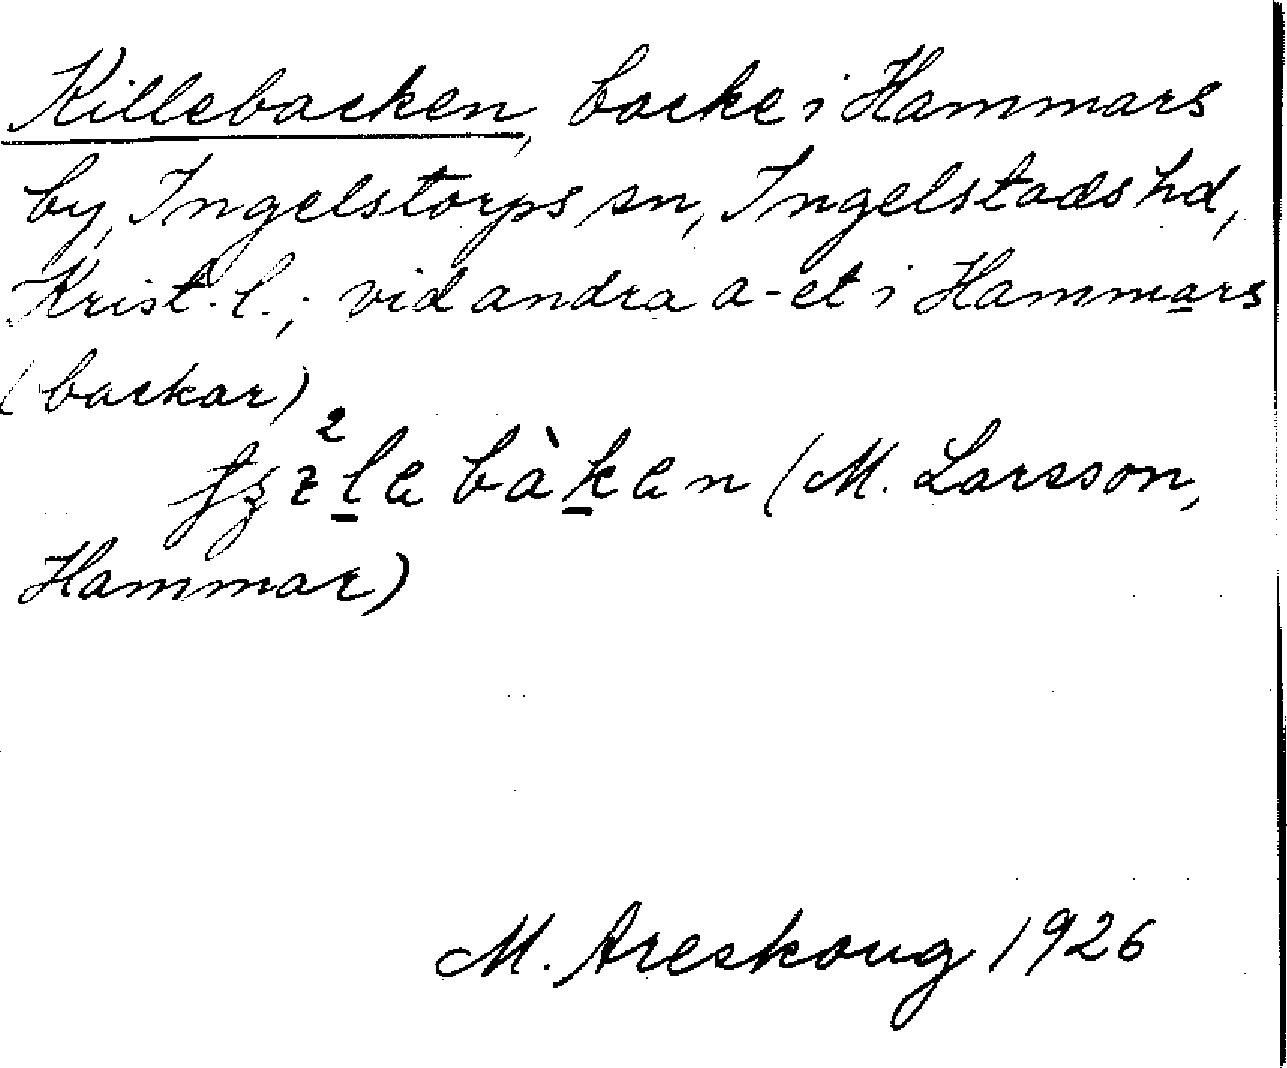 Killebacken, backe i Hammars
by, Ingelstorps sn, Ingelstads hd,
Krist. l.; vid andra a-et i Hammars
(backar)
bàken (M. Larsson,
Hammar)
M. Areskoug 1926